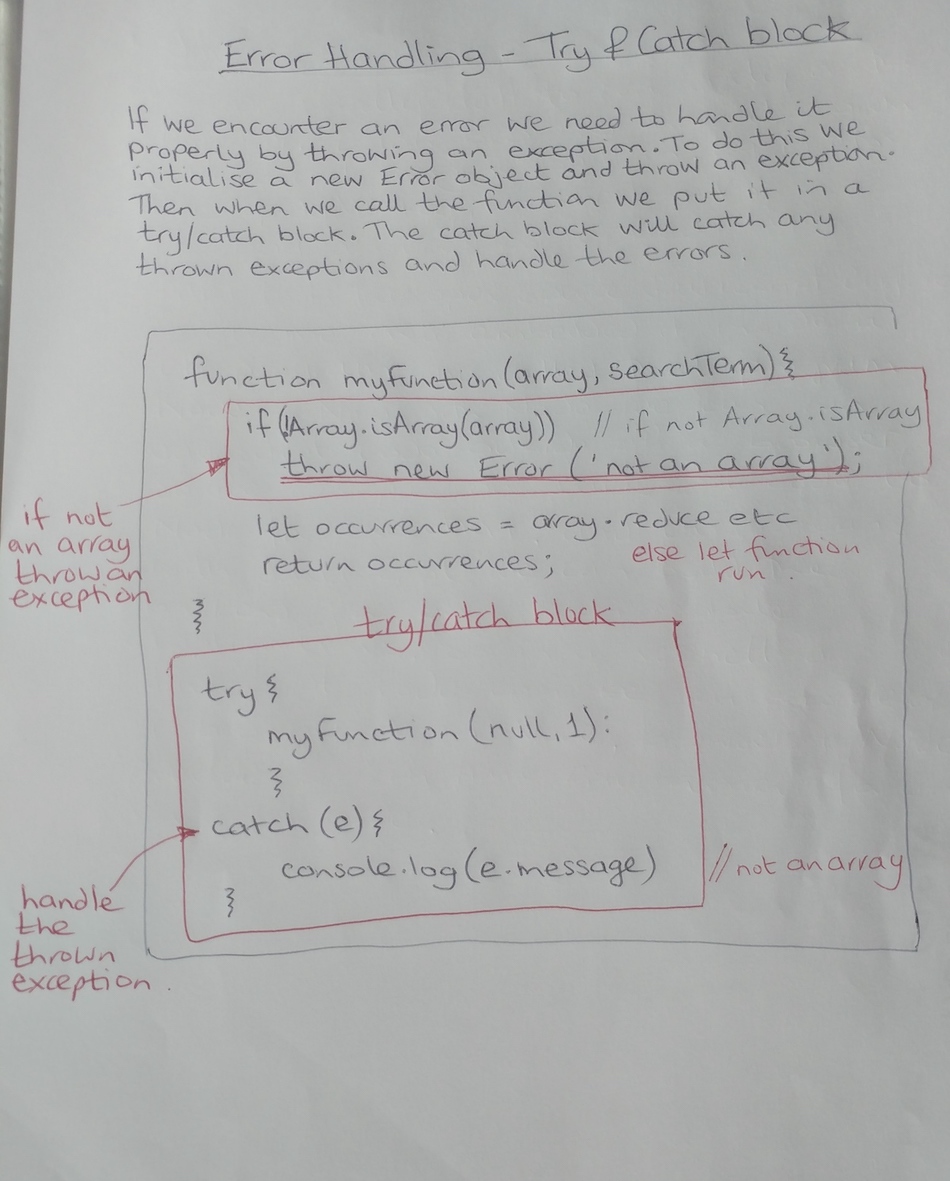 Error Handling - Try & Catch block
If we encounter an error we need to handle it
properly by throwing an exception. To do this we
initialise a new Error object and throw an exception.
Then when we call the function we put it in a
try/catch block. The catch block will catch any
thrown exceptions and handle the errors.
function myfunction(array, searchTerm){
if(!Array.isArray(array)) // if not Array.isArray
throw new Error ('not an array');
if not
an array
throw an
exception
let occurrences = array.reduce etc
return occurrences;
else let function
run.
}
try/catch block
try {
myFunction (null, 1):
}
catch (e) {
console.log (e.message)
// not an array
}
handle
the
thrown
exception.